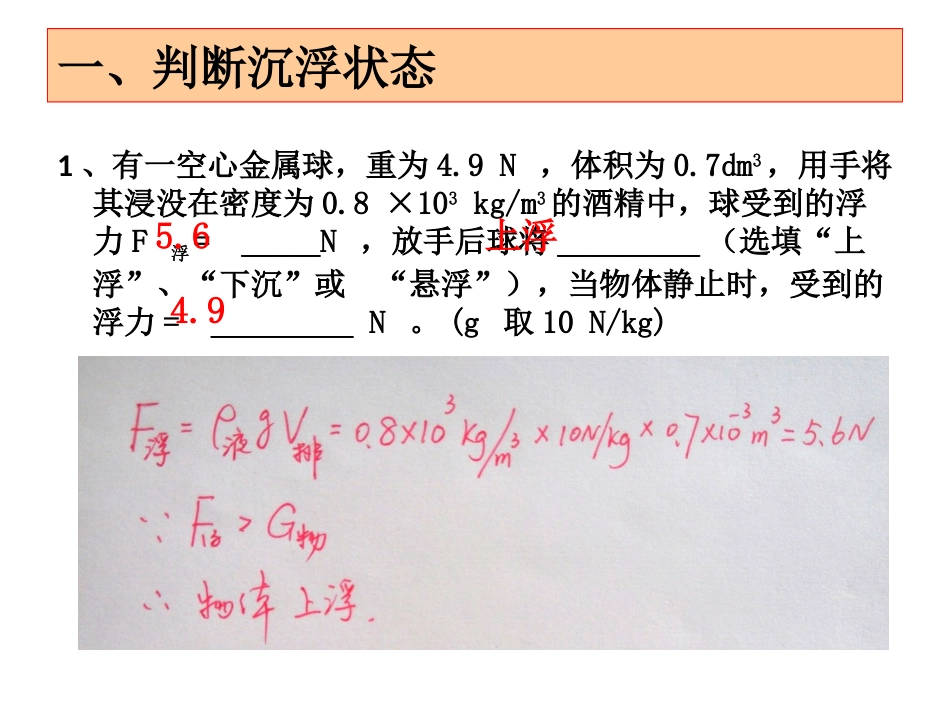 一、判断沉浮状态
1、有一空心金属球，重为4.9 N ，体积为0.7dm³，用手将
其浸没在密度为0.8 ×10³ kg/m³的酒精中，球受到的浮
力F浮= 5.6 N ，放手后球将 上浮 （选填“上
浮”、“下沉”或 “悬浮”），当物体静止时，受到的
浮力= 4.9 N 。(g 取10 N/kg)
F浮=ρ液gV排=0.8×10³kg/m³×10N/kg×0.7×10⁻³m³=5.6N
∵F浮>G物
∴物体上浮.